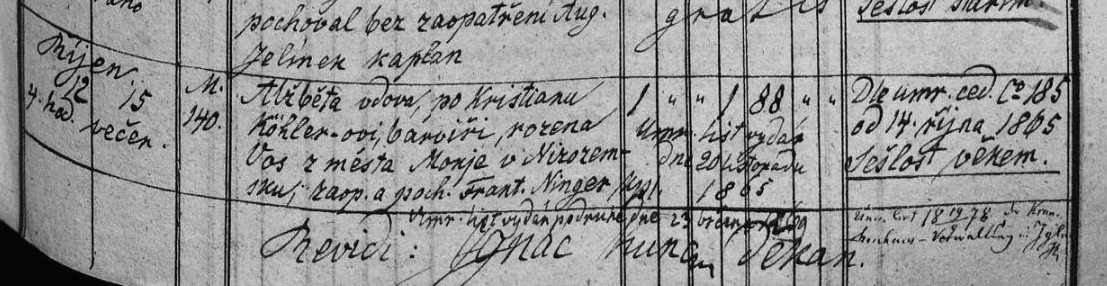 pochoval bez zaopatření Aug. gratis Sešlost stářím.
Jelínek kaplan
Říjen
12 15
4. hod. večer.
M. 140.
Alžběta vdova, po Kristianu 1 " " 1 88 " " Dle umr. ced. Co 185
Köhler-ovi, barvíři, rozená Umr. list vydán od 14. října 1865
Vos z města Monje v Nizozem- dne 20 listopadu Sešlost věkem.
sku; zaop. a poch. Frant. Ninger, kpl. 1865
Umr. list vydán podruhé dne 23 1869
Umr. list 18 19/4 78
Revidi: Ignác děkan.